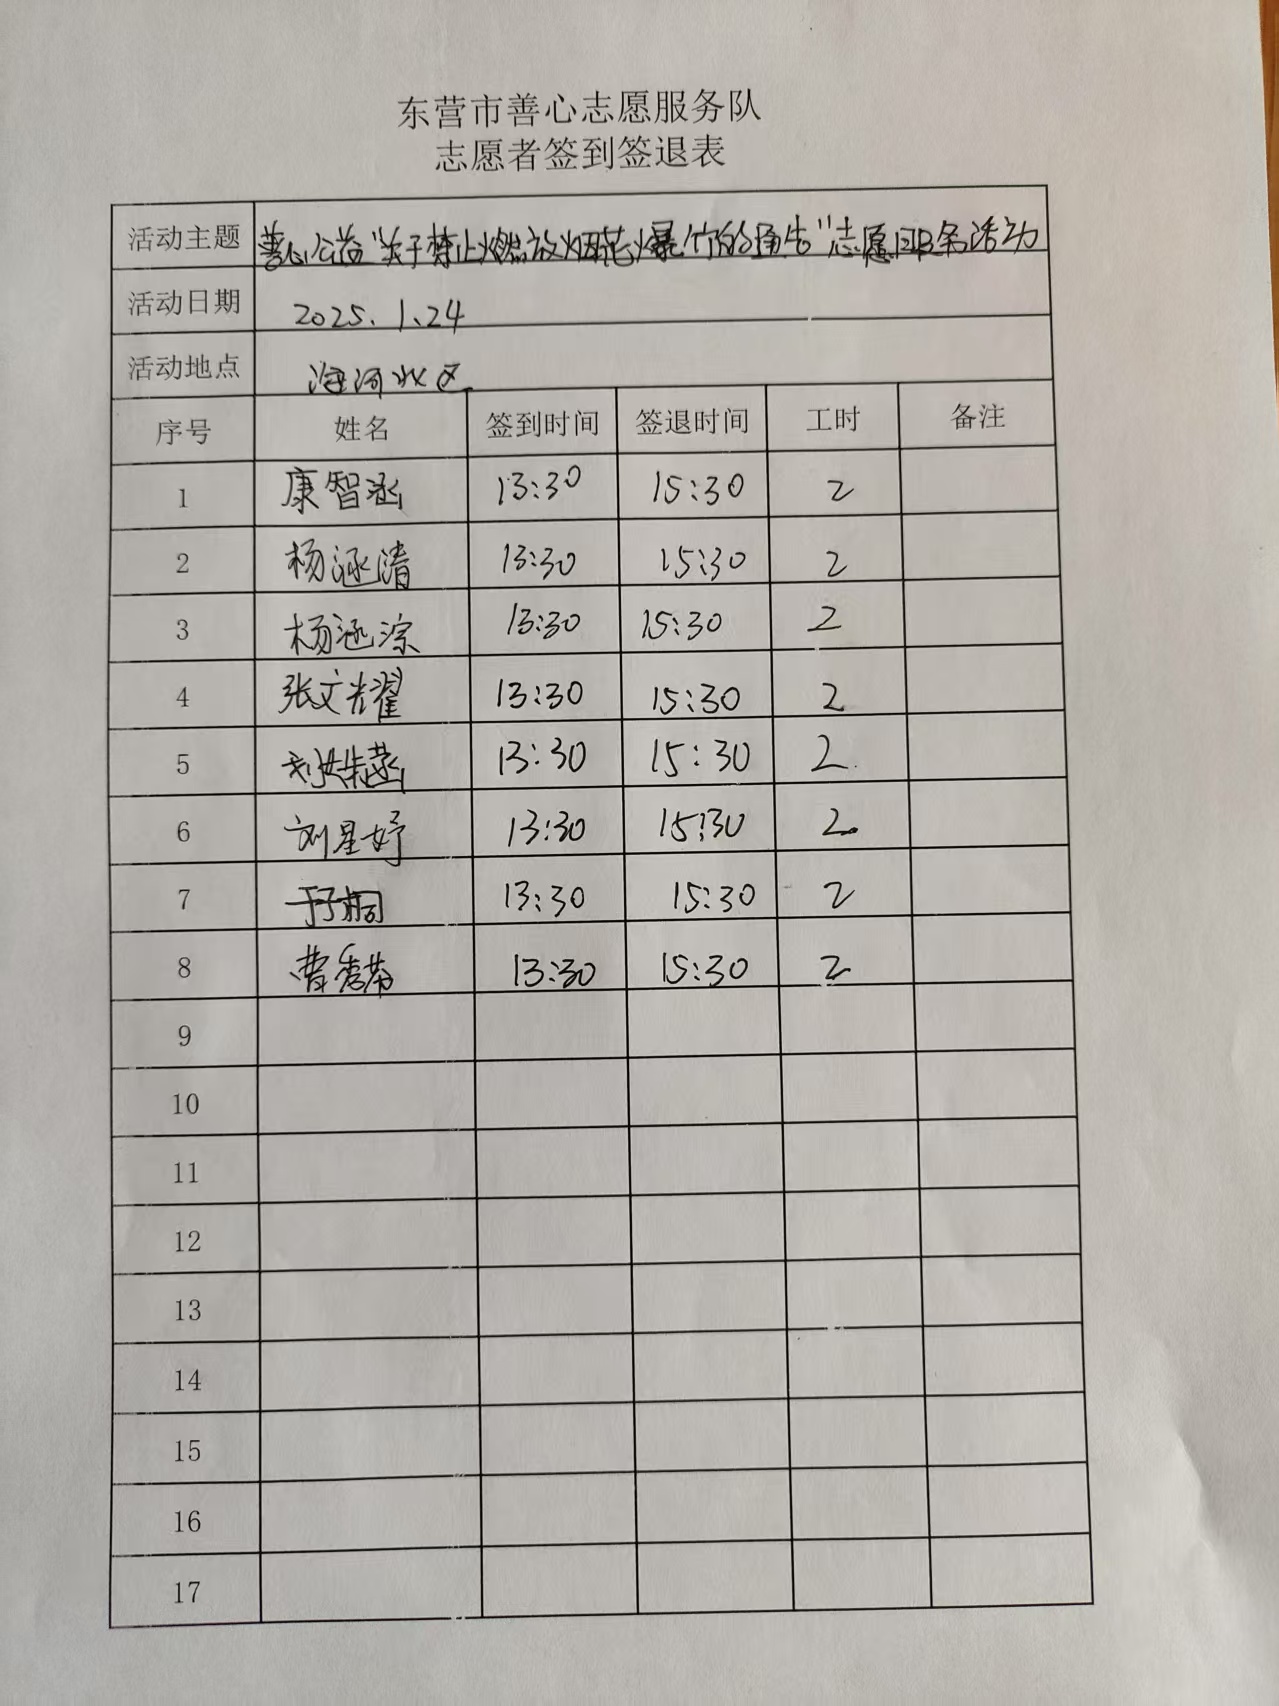 东营市善心志愿服务队
志愿者签到签退表
活动主题 善心公益"关于禁止燃放烟花爆竹的通告"志愿服务活动
活动日期 2025.1.24
活动地点 海河北区
序号 姓名 签到时间 签退时间 工时 备注
1 康智涵 13:30 15:30 2
2 杨涵清 13:30 15:30 2
3 杨涵淙 13:30 15:30 2
4 张文耀 13:30 15:30 2
5 13:30 15:30 2
6 刘星妤 13:30 15:30 2
7 于子桐 13:30 15:30 2
8 曹秀荣 13:30 15:30 2
9
10
11
12
13
14
15
16
17